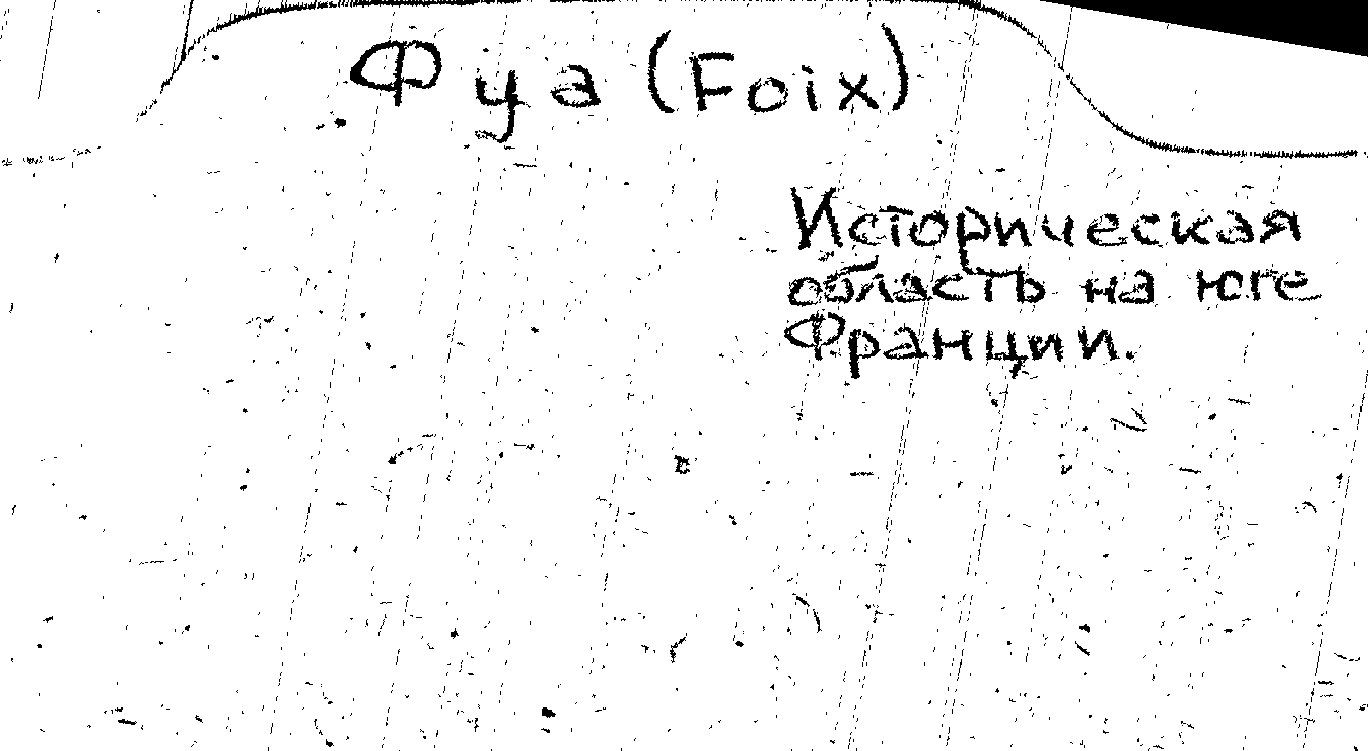 Фуа (Foix)
Историческая
область на юге
Франции.